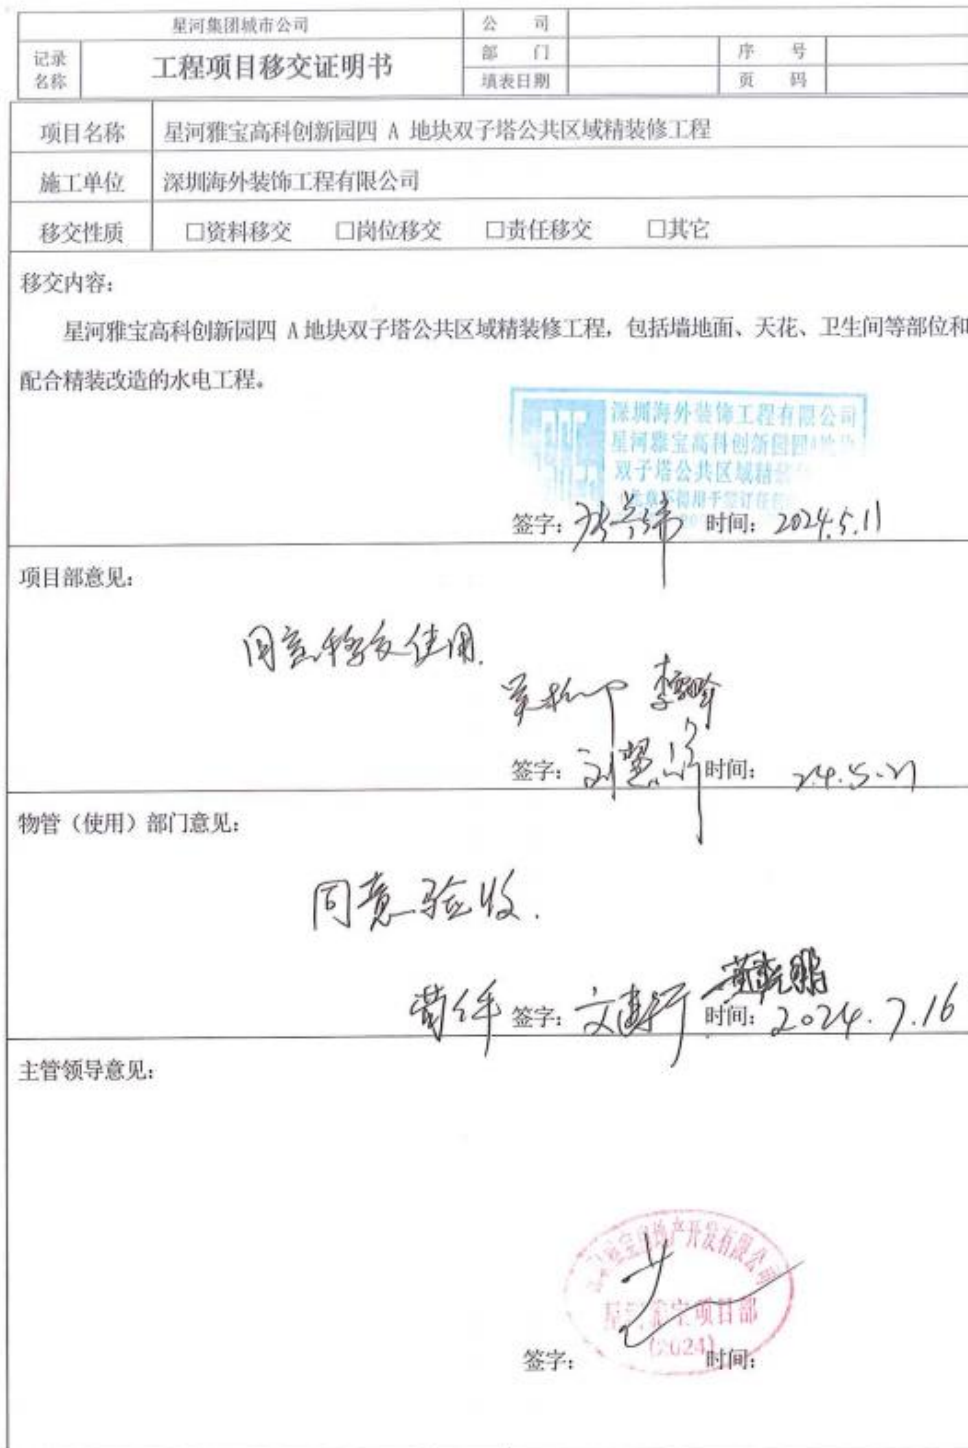 星河集团城市公司
公 司
记录名称
工程项目移交证明书
部 门
序 号
填表日期
页 码
项目名称 星河雅宝高科创新园四 A 地块双子塔公共区域精装修工程
施工单位 深圳海外装饰工程有限公司
移交性质 □资料移交 □岗位移交 □责任移交 □其它
移交内容:
星河雅宝高科创新园四 A 地块双子塔公共区域精装修工程,包括墙地面、天花、卫生间等部位和
配合精装改造的水电工程。
深圳海外装饰工程有限公司
星河雅宝高科创新园四A地块
双子塔公共区域精装
签字: 时间: 2024.5.11
项目部意见:
同意移交使用.
签字: 时间: 24.5.21
物管(使用)部门意见:
同意验收.
签字: 时间: 2024.7.16
主管领导意见:
地产开发有限公司
星河雅宝项目部
(2024)
签字: 时间: